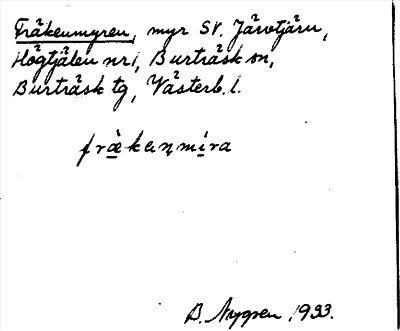 Fräkenmyren, myr SV. Järvtjärn,
Högtjälen nr 1, Burträsk sn,
Burträsk tg, Västerb. l.
fràkaṇmíra
B. Nygren, 1933.